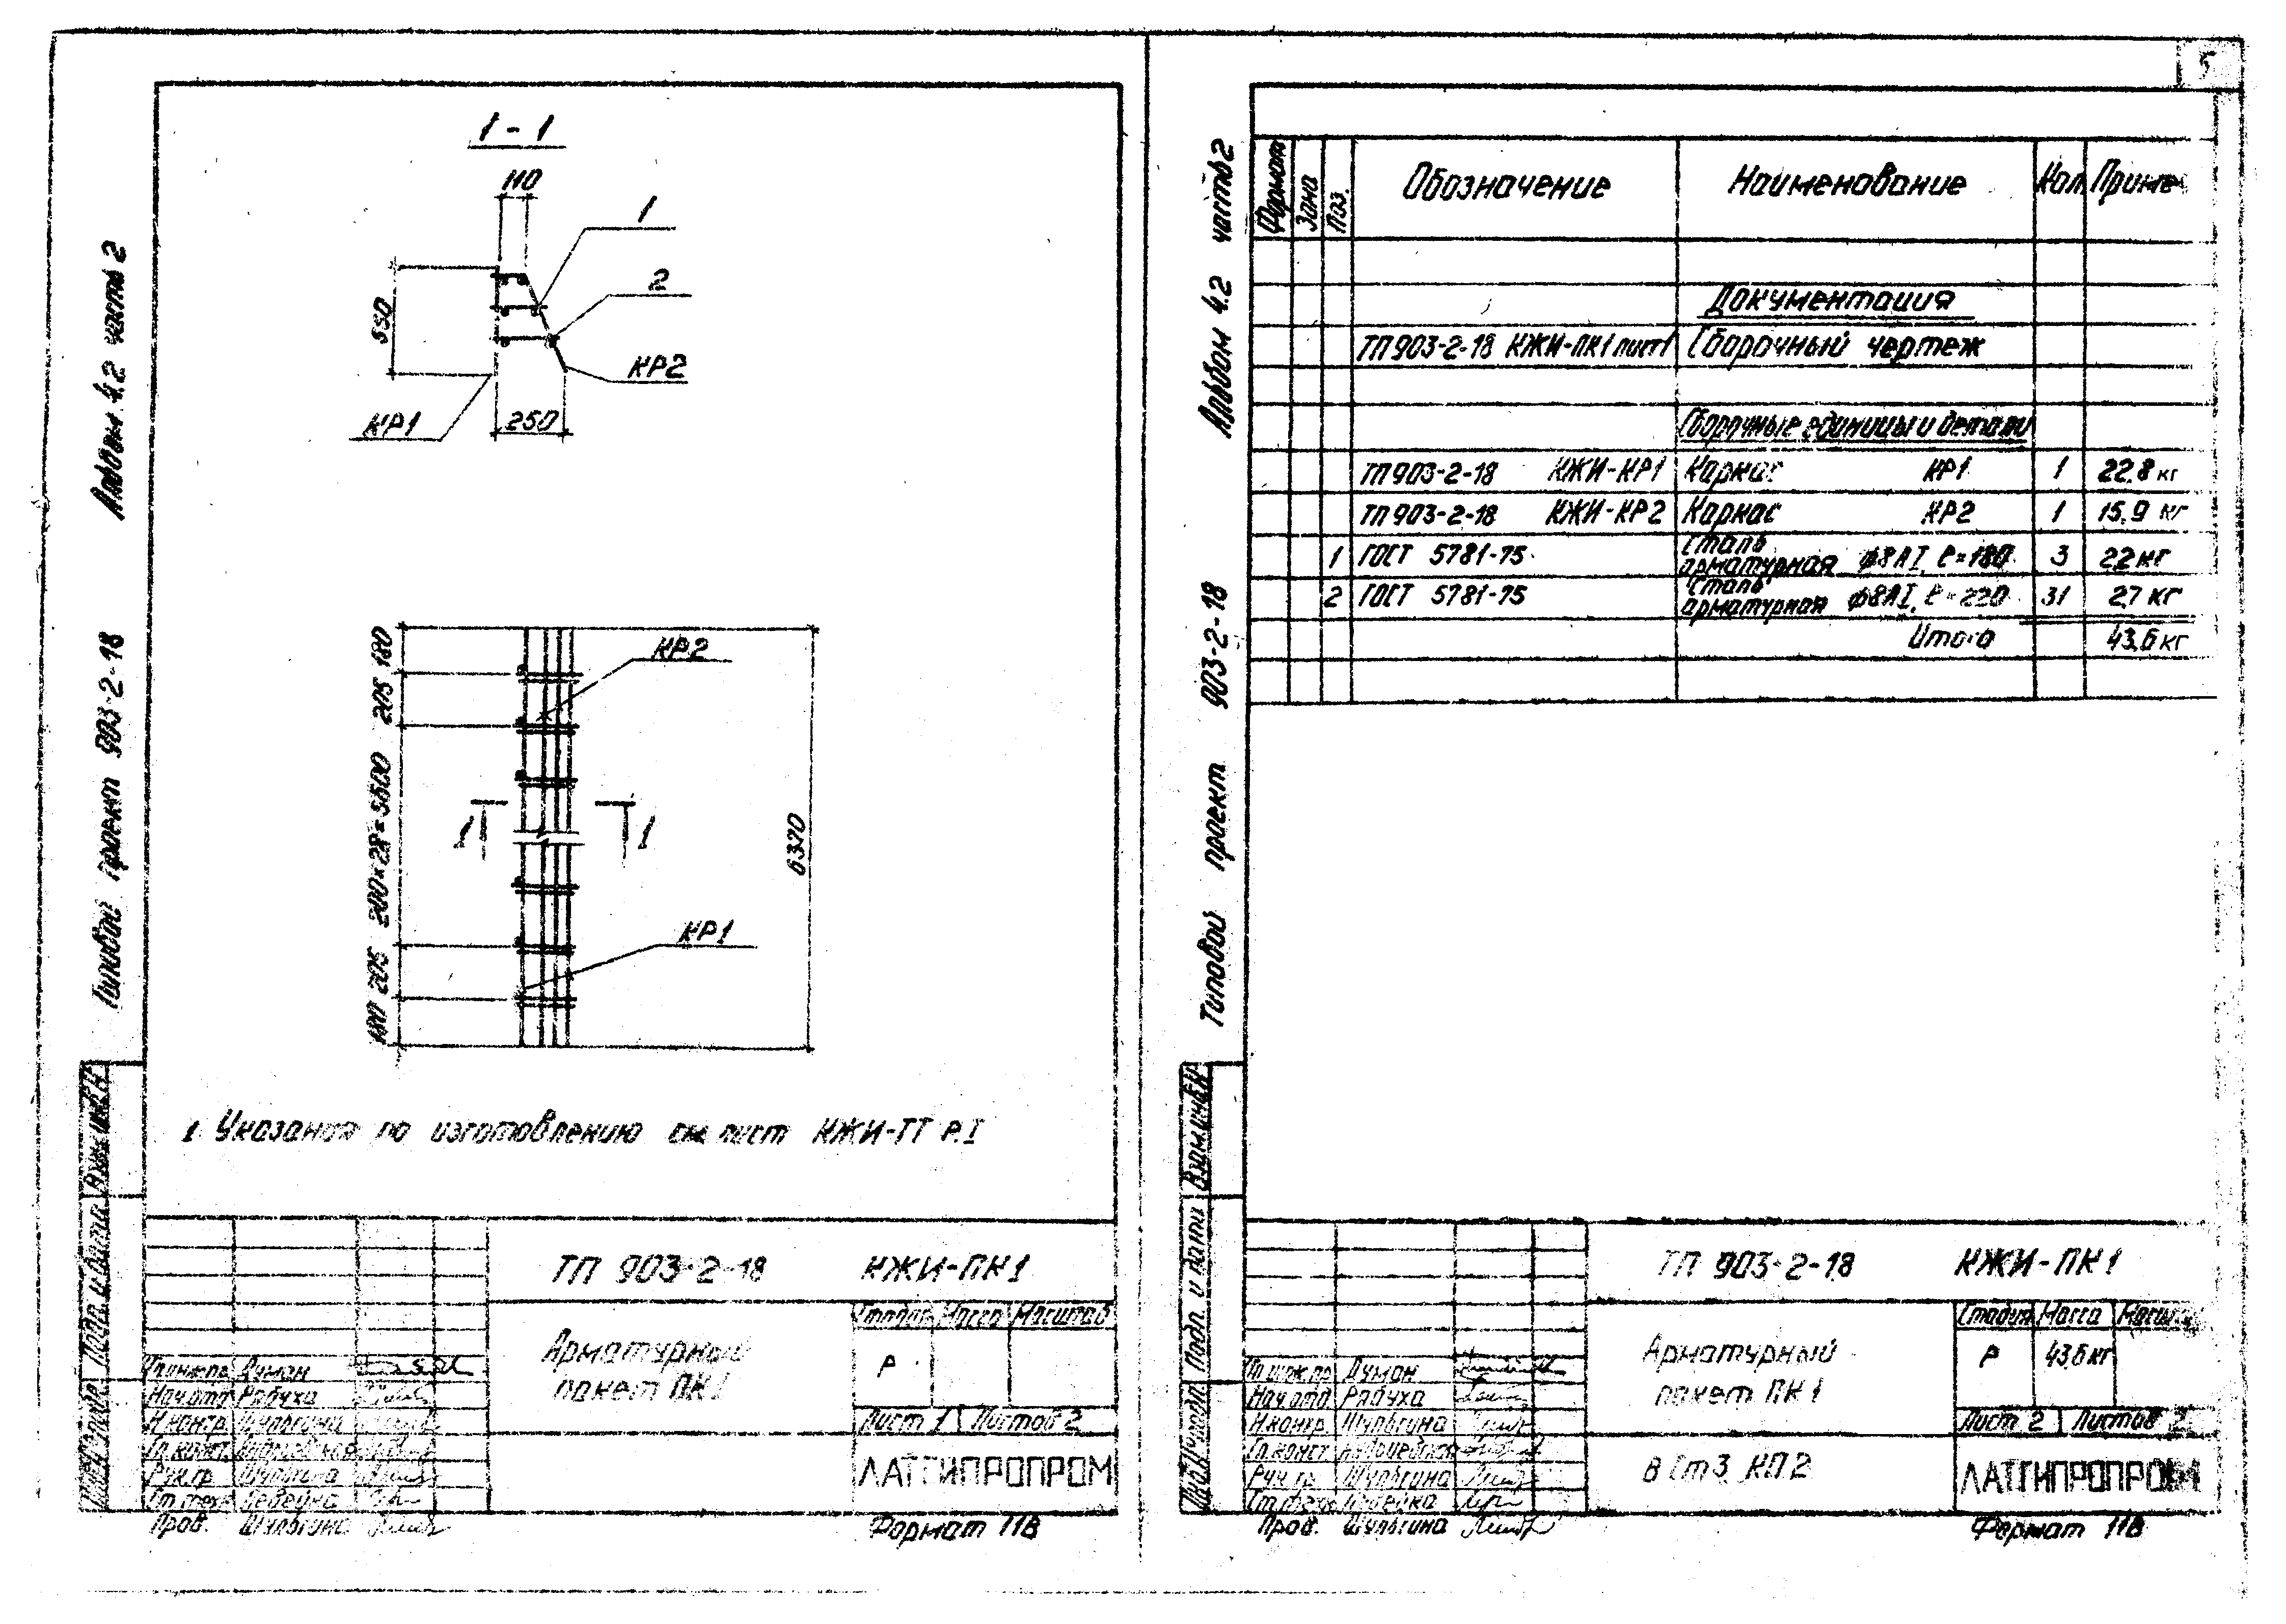 5
1-1
110
1
2
КР2
550
КР1
250
180
205
200×28=5600
205
180
КР2
1
1
6370
КР1
1 Указания по изготовлению см. лист КЖИ-ТТ Р.I
Типовой проект 903-2-18 Альбом 4.2 часть 2
Взам инв N
Подп. и дата
ТП 903-2-18 КЖИ-ПК1
Арматурный
пакет ПК1
Стадия Масса Масштаб
Р
Лист 1 Листов 2
ЛАТГИПРОПРОМ
Гл.инж.пр. Думан
Нач.отд. Рябуха
Н.контр. Шульгина
Гл.конст.
Рук.гр. Шульгина
Ст.техн.
Пров. Шульгина
Формат 11В
Типовой проект 903-2-18 Альбом 4.2 часть 2
Формат Зона Поз. Обозначение Наименование Кол. Приме
Документация
ТП 903-2-18 КЖИ-ПК1 лист 1 Сборочный чертеж
Сборочные единицы и детали
ТП 903-2-18 КЖИ-КР1 Каркас КР1 1 22.8 кг
ТП 903-2-18 КЖИ-КР2 Каркас КР2 1 15.9 кг
1 ГОСТ 5781-75 Сталь арматурная ф8АI, ℓ=180 3 2.2 кг
2 ГОСТ 5781-75 Сталь арматурная ф8АI, ℓ=220 31 2.7 кг
Итого 43.6 кг
Взам.инв.N
Подп. и дата
Инв.N подл.
ТП 903-2-18 КЖИ-ПК1
Арматурный
пакет ПК1
Стадия Масса
Р 43.6 кг
Лист 2 Листов 2
В Ст3 КП2
ЛАТГИПРОПРОМ
Гл.инж.пр. Думан
Нач.отд. Рябуха
Н.контр. Шульгина
Гл.конст.
Рук.гр. Шульгина
Ст.техн.
Пров. Шульгина
Формат 11В